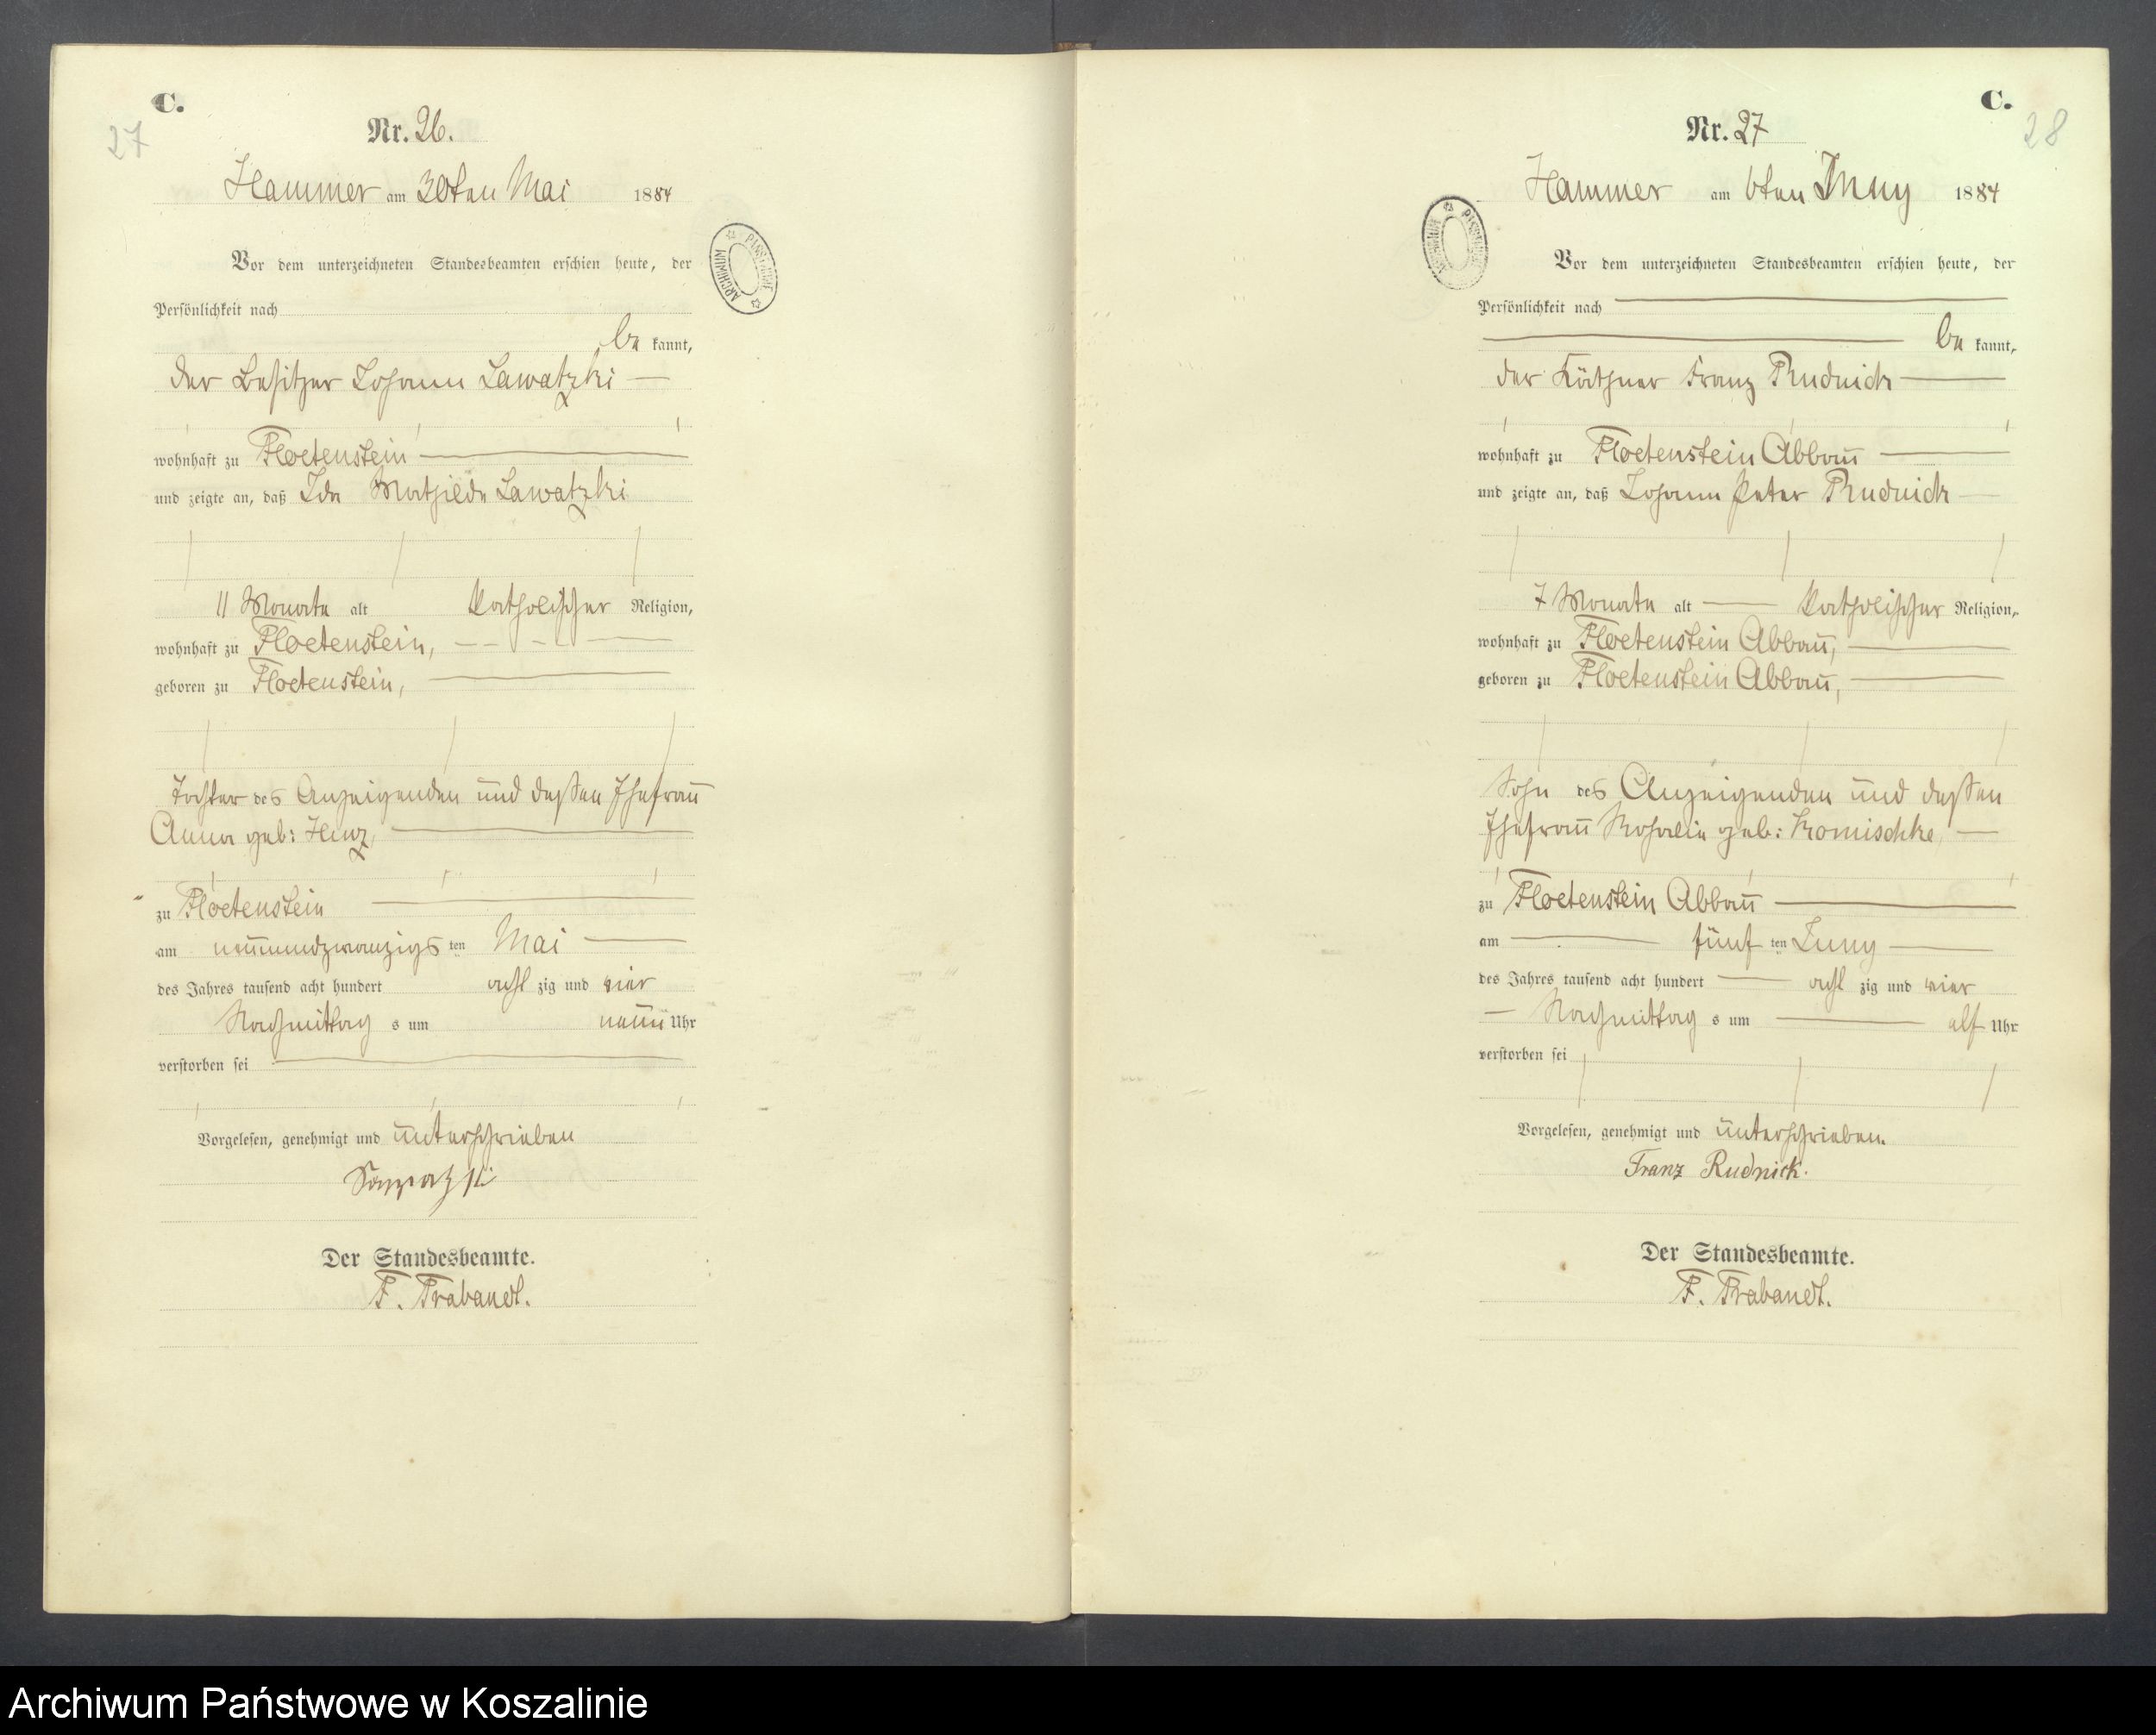 C.
27
Nr. 26.
Hammer am 30ten Mai 1884
Vor dem unterzeichneten Standesbeamten erschien heute, der
Persönlichkeit nach
be kannt,
der Besitzer Johann Lawatzki
wohnhaft zu Floetenstein
und zeigte an, daß Ida Mathilde Lawatzki
11 Monate alt katholischer Religion,
wohnhaft zu Floetenstein,
geboren zu Floetenstein,
Tochter des Anzeigenden und dessen Ehefrau
Anna geb: Hinz,
zu Floetenstein
am neunundzwanzigs ten Mai
des Jahres tausend acht hundert acht zig und vier
Nachmittag s um neun Uhr
verstorben sei
Vorgelesen, genehmigt und unterschrieben
Der Standesbeamte.
F. Trabandt.
ARCHIWUM PAŃSTWOWE
C.
28
Nr. 27
Hammer am 6ten Juny 1884
Vor dem unterzeichneten Standesbeamten erschien heute, der
Persönlichkeit nach
be kannt,
der Käthner Franz Rudnick
wohnhaft zu Floetenstein Abbau
und zeigte an, daß Johann Peter Rudnick
7 Monate alt katholischer Religion,
wohnhaft zu Floetenstein Abbau,
geboren zu Floetenstein Abbau,
Sohn des Anzeigenden und dessen
Ehefrau Rosalie geb: Komischke,
zu Floetenstein Abbau
am fünf ten Juny
des Jahres tausend acht hundert acht zig und vier
Nachmittag s um elf Uhr
verstorben sei
Vorgelesen, genehmigt und unterschrieben.
Franz Rudnick.
Der Standesbeamte.
F. Trabandt.
Archiwum Państwowe w Koszalinie